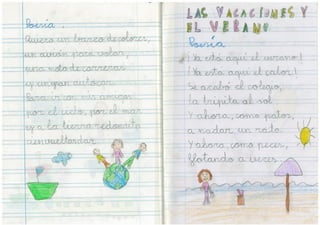 Poesía.
Quiero un barco de colores,
un avión para volar,
una moto de carreras
y un gran autocar.
Para ir con mis amigos
por el cielo, por el mar
y a la tierra redondita
LAS VACACIONES Y
EL VERANO
Poesía
¡Ya está aquí el verano!
¡Ya esta aquí el calor!
Se acabó el colegio,
la tripita al sol
Y ahora, como patos,
a nadar un rato.
Y ahora, como peces,
flotando a veces.